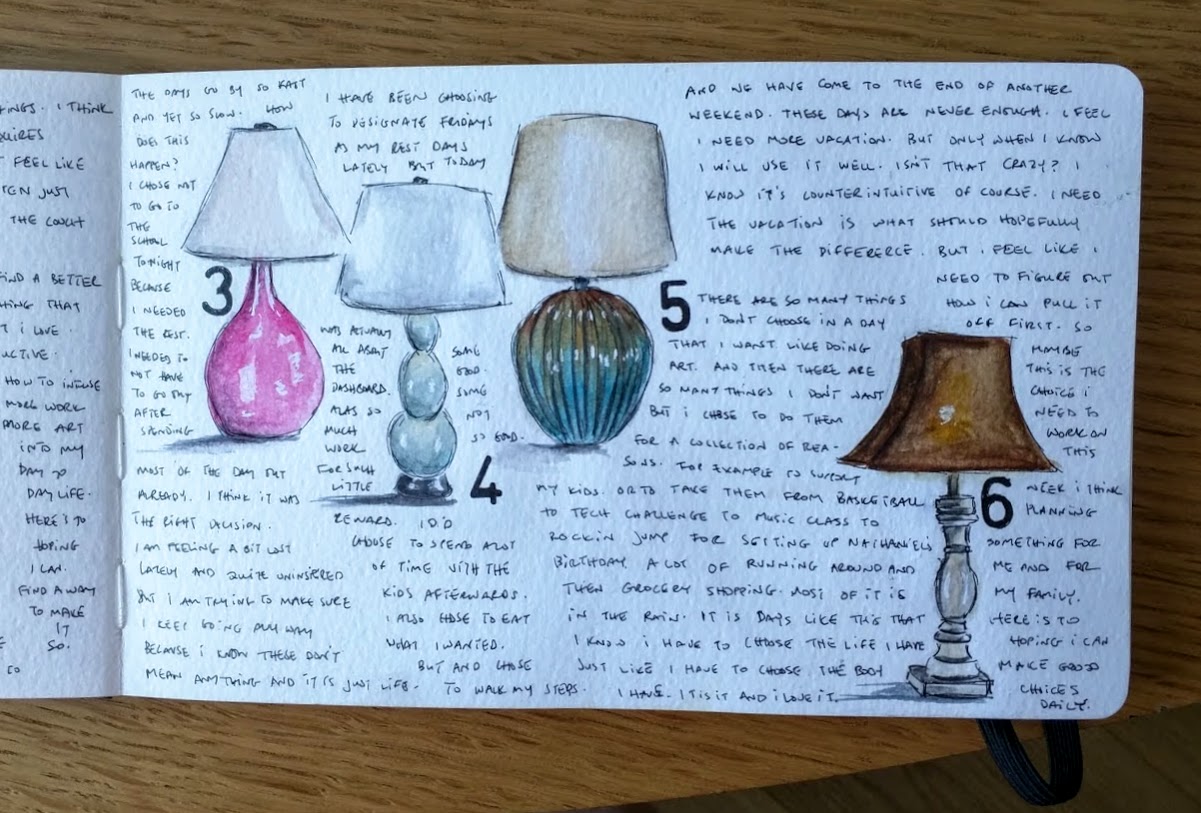 INGS. I THINK
QUIRES
T FEEL LIKE
TEN JUST
THE COUCH
FIND A BETTER
HING THAT
T I LOVE.
UCTIVE.
HOW TO INFUSE
MORE WORK
MORE ART
INTO MY
DAY TO
DAY LIFE.
HERE'S TO
HOPING
I CAN.
FIND A WAY
TO MAKE
IT
SO.
THE DAYS GO BY SO FAST
AND YET SO SLOW. HOW
DOES THIS
HAPPEN?
I CHOSE NOT
TO GO TO
THE
SCHOOL
TONIGHT
BECAUSE
I NEEDED
THE REST.
I NEEDED TO
NOT HAVE
TO GO
AFTER
SPENDING
3
MOST OF THE DAY
ALREADY. I THINK IT WAS
THE RIGHT DECISION.
I AM FEELING A BIT LOST
LATELY AND QUITE UNINSPIRED
BUT I AM TRYING TO MAKE SURE
I KEEP GOING ANYWAY
BECAUSE I KNOW THESE DON'T
MEAN ANYTHING AND IT IS JUST LIFE.
I HAVE BEEN CHOOSING
TO DESIGNATE FRIDAYS
AS MY REST DAYS
LATELY BUT TODAY
WAS ACTUALLY
ALL ABOUT
THE
DASHBOARD.
ALAS SO
MUCH
WORK
FOR SUCH
LITTLE
REWARD.
SOME
GOOD
SOME
NOT
SO GOOD.
4
I DID
CHOOSE TO SPEND A LOT
OF TIME WITH THE
KIDS AFTERWARDS.
I ALSO CHOSE TO EAT
WHAT I WANTED.
BUT AND CHOSE
TO WALK MY STEPS.
5
THERE ARE SO MANY THINGS
I DON'T CHOOSE IN A DAY
THAT I WANT LIKE DOING
ART. AND THEN THERE ARE
SO MANY THINGS I DON'T WANT
BUT I CHOSE TO DO THEM
FOR A COLLECTION OF REA-
SONS. FOR EXAMPLE TO SUPPORT
MY KIDS. OR TO TAKE THEM FROM BASKETBALL
TO TECH CHALLENGE TO MUSIC CLASS TO
ROCKIN JUMP FOR SETTING UP NATHANIEL'S
BIRTHDAY. A LOT OF RUNNING AROUND AND
THEN GROCERY SHOPPING. MOST OF IT IS
IN THE RAIN. IT IS DAYS LIKE THIS THAT
I KNOW I HAVE TO CHOOSE THE LIFE I HAVE
JUST LIKE I HAVE TO CHOOSE THE BODY
I HAVE. IT IS IT AND I LOVE IT.
AND WE HAVE COME TO THE END OF ANOTHER
WEEKEND. THESE DAYS ARE NEVER ENOUGH. I FEEL
I NEED MORE VACATION. BUT ONLY WHEN I KNOW
I WILL USE IT WELL. ISN'T THAT CRAZY? I
KNOW IT'S COUNTERINTUITIVE OF COURSE. I NEED
THE VACATION IS WHAT SHOULD HOPEFULLY
MAKE THE DIFFERENCE. BUT I FEEL LIKE I
NEED TO FIGURE OUT
HOW I CAN PULL IT
OFF FIRST. SO
MAYBE
THIS IS THE
CHOICE I
NEED TO
WORK ON
THIS
6
WEEK I THINK
PLANNING
SOMETHING FOR
ME AND FOR
MY FAMILY.
HERE IS TO
HOPING I CAN
MAKE GOOD
CHOICES
DAILY.